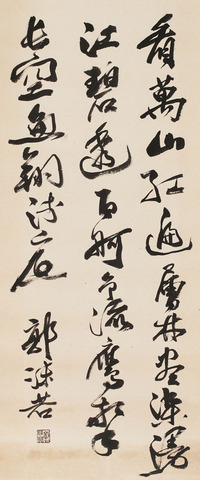 看萬山紅遍層林盡染漫
江碧透百舸爭流鷹擊
長空魚翔淺底
郭沫若